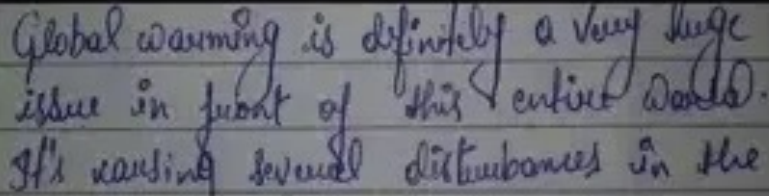 Global warming is definitely a very huge
issue in front of this entire world.
It's causing several disturbances in the